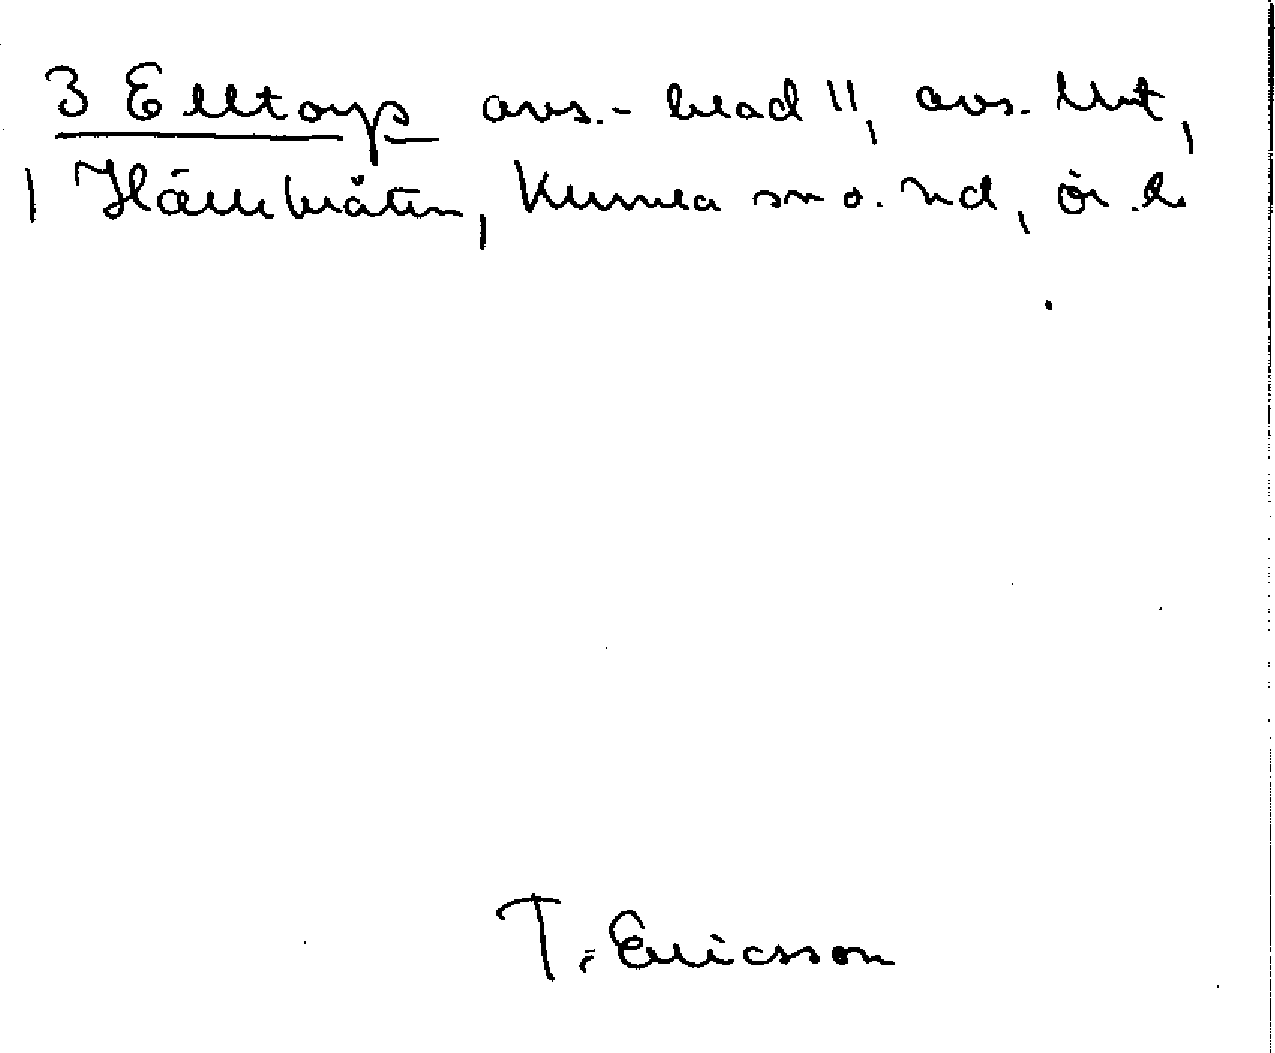 3 Elltorp avs.-blad 11, avs. Utt,
1 Hällebråten, Kumla sn o. hd, ör. l.
T. Ericsson